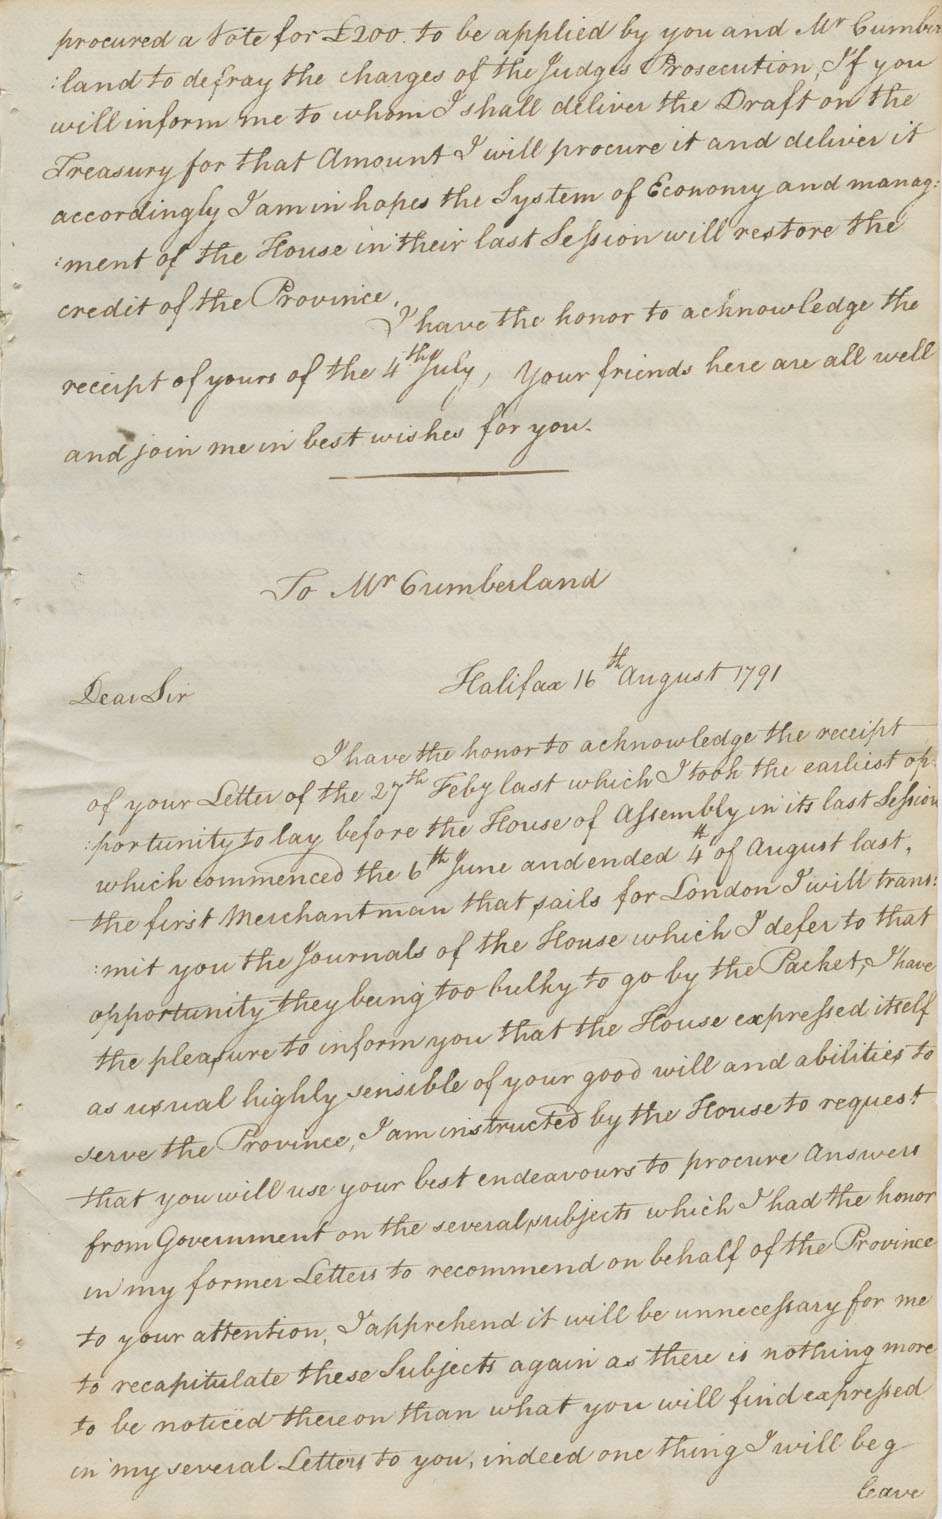 procured a Vote for £200. to be applied by you and Mr Cumber
:land to defray the charges of the Judges Prosecution, If you
will inform me to whom I shall deliver the Draft on the
Treasury for that Amount I will procure it and deliver it
accordingly I am in hopes the System of Economy and manag:
:ment of the House in their last Seſsion will restore the
credit of the Province.
I have the honor to acknowledge the
receipt of yours of the 4th July, Your friends here are all well
and join me in best wishes for you.
To Mr Cumberland
Halifax 16th August 1791
Dear Sir
I have the honor to acknowledge the receipt
of your Letter of the 27th Feby last which I took the earliest op:
:portunity to lay before the House of Aſsembly in its last Seſsion
which commenced the 6th June and ended 4th of August last,
the first Merchantman that sails for London I will trans:
:mit you the Journals of the House which I defer to that
opportunity they being too bulky to go by the Packet, I have
the pleasure to inform you that the House expreſsed itself
as usual highly sensible of your good will and abilities to
serve the Province, I am instructed by the House to request
that you will use your best endeavours to procure Answers
from Government on the several subjects which I had the honor
in my former Letters to recommend on behalf of the Province
to your attention, I apprehend it will be unneceſsary for me
to recapitulate these Subjects again as there is nothing more
to be noticed thereon than what you will find expreſsed
in my several Letters to you, indeed one thing I will beg
leave